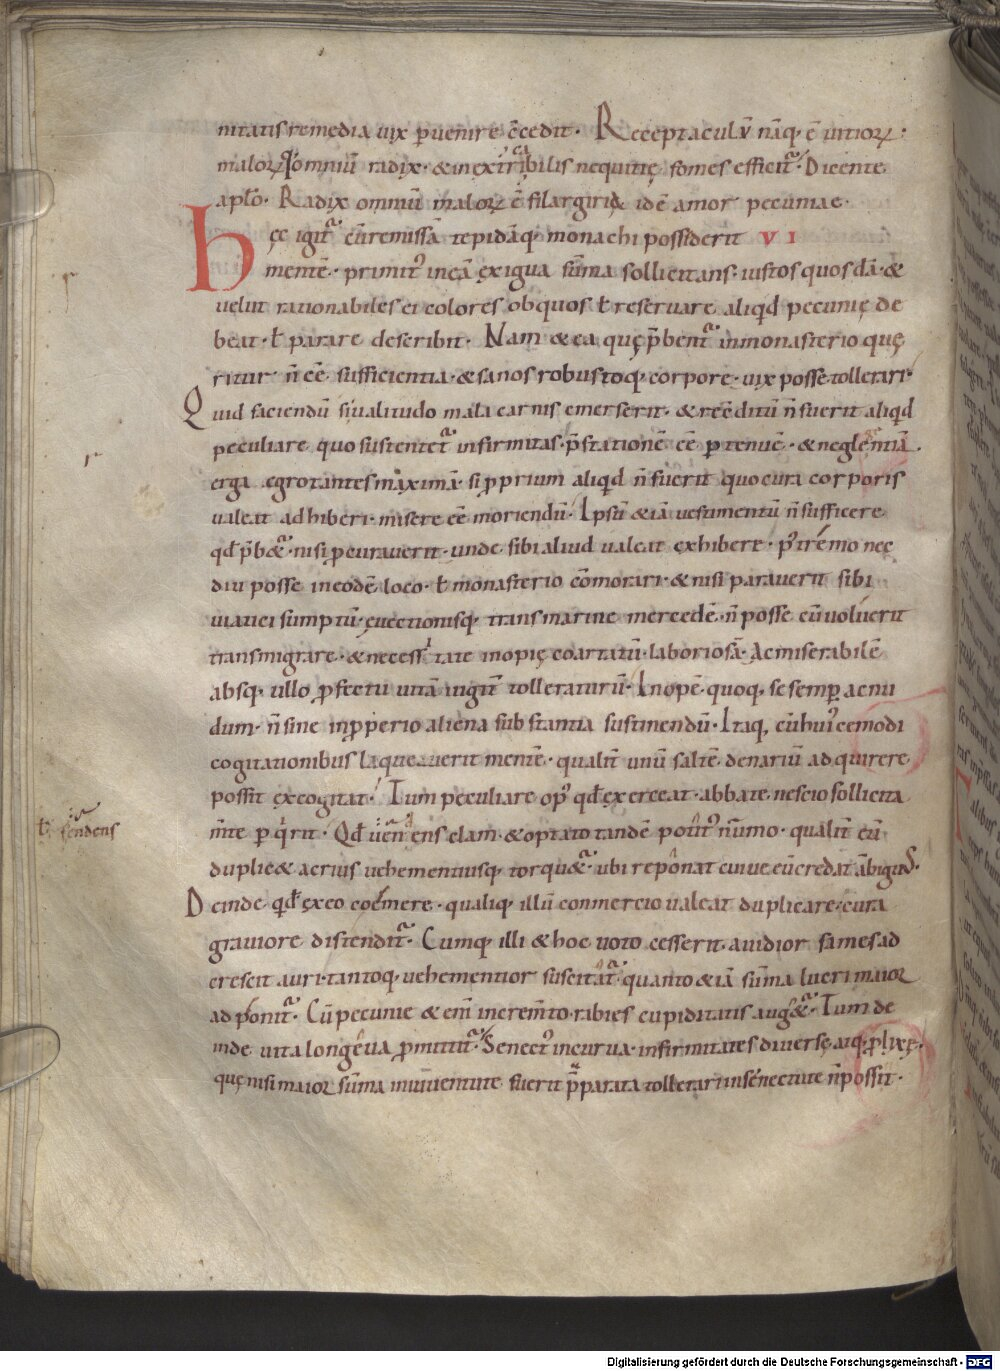 nitatis remedia uix puenire c̄cedit. Receptaculū nāq; ē uitioꝝ.
maloꝝ q; omniū radix. & inextricabilis nequitię fomes efficit᷑. Dicente
aplo. Radix omniū maloꝝ ē filargiria idē amor pecuniae.
Hęc igit᷑ cū remissā tepidāq; monachi possiderit VI
mentē. primit᷒ in eā exigua sūma sollicitans. iustos quosdā. &
uelut rationabiles ei colores ob quos ł reseruare aliqđ pecunię de
beat. ł parare describit. Nam & ea quę p̄bent᷑ in monasterio que
ritur n̄ cē sufficientia. & sano robustoq; corpore. uix posse tollerari.
Quid faciendū si ualitudo mala carnis emerserit. & recōditū n̄ fuerit aliqđ
peculiare quo sustentet᷑ infirmitas. p̄stationē cē ꝑtenuē. & neglegentiā
erga egrotantes maximā. si ꝓprium aliqđ n̄ fuerit quo cura corporis
ualeat adhiberi. misere cē moriendū. Ipsū &iā uestimentū n̄ sufficere
qđ p̄b&᷑. nisi ꝓcurauerit. unde sibi aliud ualeat exhibere. Pͦtremo nec
diu posse in eodē loco. ł monasterio cōmorari. & nisi parauerit sibi
uiatici sumptū. euectionisq; transmarine mercedē. n̄ posse cū uoluerit
transmigrare. & necessitate inopię coartatū. laboriosā. Ac miserabilē
absq; ullo ꝓfectu uitā iugit᷑ tolleraturū. Inopē quoq; se semꝑ ac nu
dum. n̄ sine inꝓperio aliena substantia sustinendū. Itaq; cū huiꝰcemodi
cogitationibus laqueauerit mentē. qualit᷑ unū saltē denariū adquirere
possit excogitat. Tum peculiare opꝰ qđ exerceat. abbate nescio sollicita
m̄te ꝑq̇rit. Qđ uēnens clam. & optato tandē potit᷒ nūmo. qualit᷑ eū
ł sendens
duplic& acrius uehementiusq; torqu&᷑. ubi reponat cuiue eū credat ābigus.
Deinde qđ ex eo coemere. qualiq; illū commercio ualeat duplicare. cura
grauiore distendit᷑. Cumq; illi & hoc uoto cesserit. auidior fames ad
crescit auri. tantoq; uehementior suscitat᷑. quanto &iā sūma lucri maior
adponit᷑. Cū pecunie & eni incremto. rabies cupiditatis aug&᷑. Tum de
inde uita longeua ꝓmittit᷑. Senectꝰ incurua. infirmitates diuersę atq; ꝓlixę.
quę nisi maior sūma in iuuentute fuerit p̄parata tollerari in senectute n̄ possit.